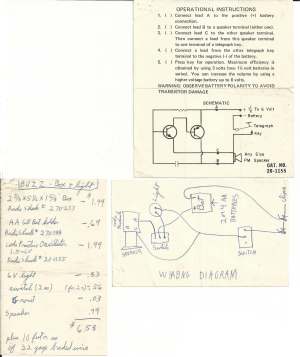 OPERATIONAL INSTRUCTIONS
1. ( ) Connect lead A to the positive (+) battery
connection.
2. ( ) Connect lead B to a speaker terminal (either one).
3. ( ) Connect lead C to the other speaker terminal.
Then connect a lead from this speaker terminal
to one terminal of a telegraph key.
4. ( ) Connect a lead from the other telegraph key
terminal to the negative (-) of the battery.
5. ( ) Press key for operation. Maximum efficiency is
obtained by using 3 volts (two 1½ volt batteries in
series). You can increase the volume by using a
higher voltage battery up to 6 volts.
WARNING: OBSERVE BATTERY POLARITY TO AVOID
TRANSISTOR DAMAGE
SCHEMATIC
to 6 Volt
Battery
Telegraph
Key
Any Size
PM Speaker
CAT. NO.
20-1155
BUZZ - Box + light
Box - 1.99
Radio Shack #
AA cell Batt holder
- .69
Radio Shack #
Code Practice Oscillator
- 1.99
Radio Shack #
6V light - .33
switch
- .03
Speaker .99
$6.53
plus 10 feet or so
of 22 gauge braided wire
Light
SPEAKER
2 AA
BATTERIES
SWITCH
WIRING DIAGRAM